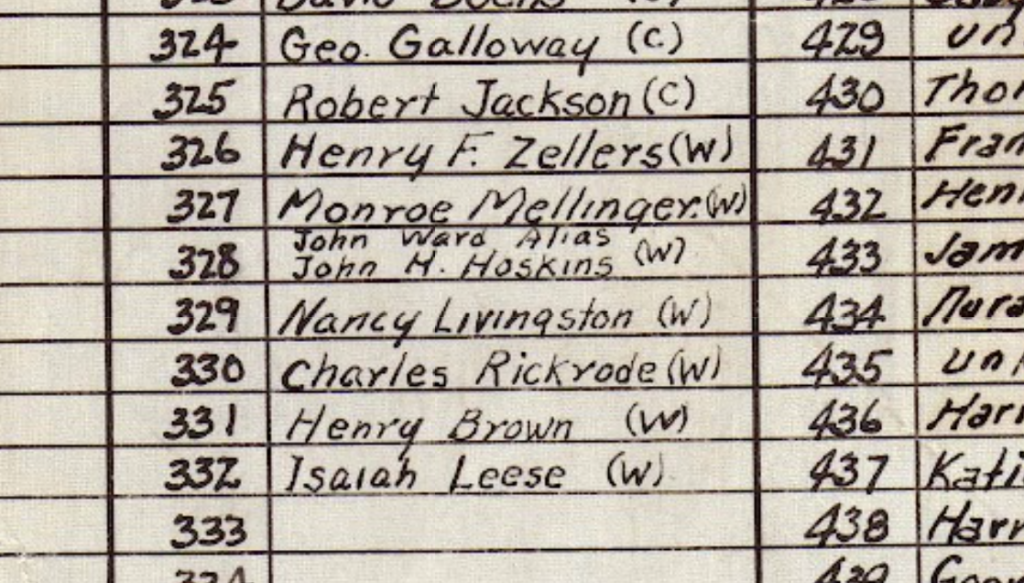 324 Geo. Galloway (C) 429 un
325 Robert Jackson (C) 430 Thom
326 Henry F. Zellers (W) 431 Fran
327 Monroe Mellinger. (W) 432 Hen
328 John Ward Alias
John H. Hoskins (W) 433 Jam
329 Nancy Livingston (W) 434
330 Charles Rickrode (W) 435 un
331 Henry Brown (W) 436 Harr
332 Isaiah Leese (W) 437 Kati
333 438 Harr